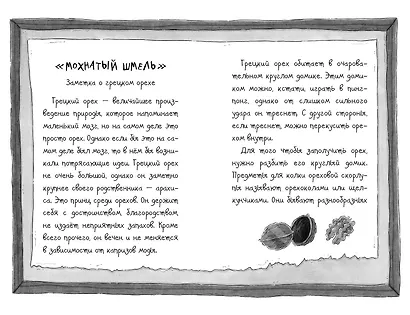 «МОХНАТЫЙ ШМЕЛЬ»
Заметка о грецком орехе
Грецкий орех — величайшее произ-
ведение природы, которое напоминает
маленький мозг, но на самом деле это
просто орех. Однако если бы это на са-
мом деле был мозг, то в нём бы возни-
кали потрясающие идеи. Грецкий орех
не очень большой, однако он заметно
крупнее своего родственника — арахи-
са. Это принц среди орехов. Он держит
себя с достоинством, благородством,
не издаёт неприятных запахов. Кроме
всего прочего, он вечен и не меняется
в зависимости от капризов моды.
Грецкий орех обитает в очарова-
тельном круглом домике. Этим доми-
ком можно, кстати, играть в пинг-
понг, однако от слишком сильного
удара он треснет. С другой стороны,
если треснет, можно перекусить оре-
хом внутри.
Для того чтобы заполучить орех,
нужно разбить его круглый домик.
Предметы для колки ореховой скорлу-
пы называют орехоколами или щел-
кунчиками. Они бывают разнообразных